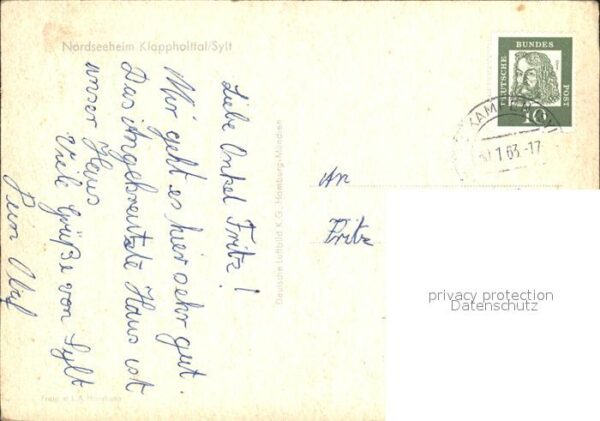 Nordseeheim Klappholttal/Sylt
Liebe Onkel Fritz!
Mir geht es hier sehr gut.
Das Angekreutzte Haus ist
unser Haus
Viele Grüße von Sylt
Olaf
Deutsche Luftbild K.G. Hamburg-München
An
Fritz
DEUTSCHE
BUNDES
POST
10
KAMPEN
63.-17
privacy protection
Datenschutz